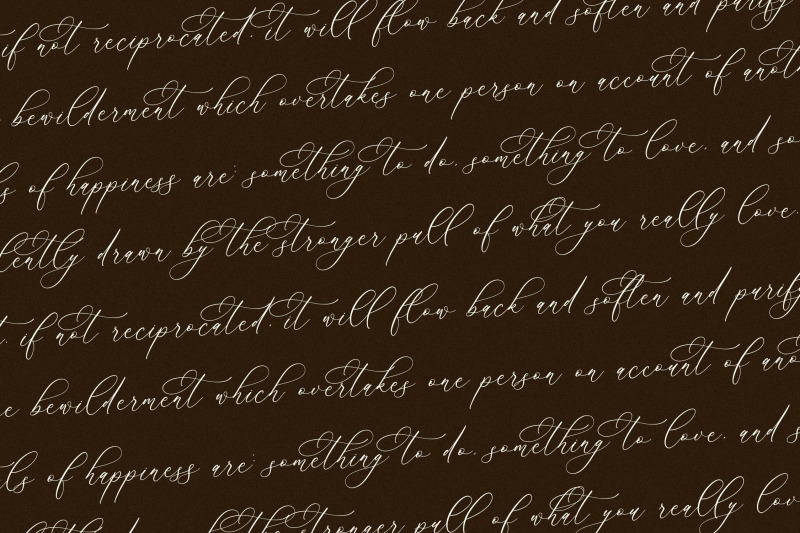 if not reciprocated, it will flow back and soften and purify
bewilderment which overtakes one person on account of anot
ls of happiness are: something to do, something to love, and so
lently drawn by the stronger pull of what you really love.
if not reciprocated, it will flow back and soften and purify
e bewilderment which overtakes one person on account of ano
ls of happiness are: something to do, something to love, and s
the stronger pull of what you really lov